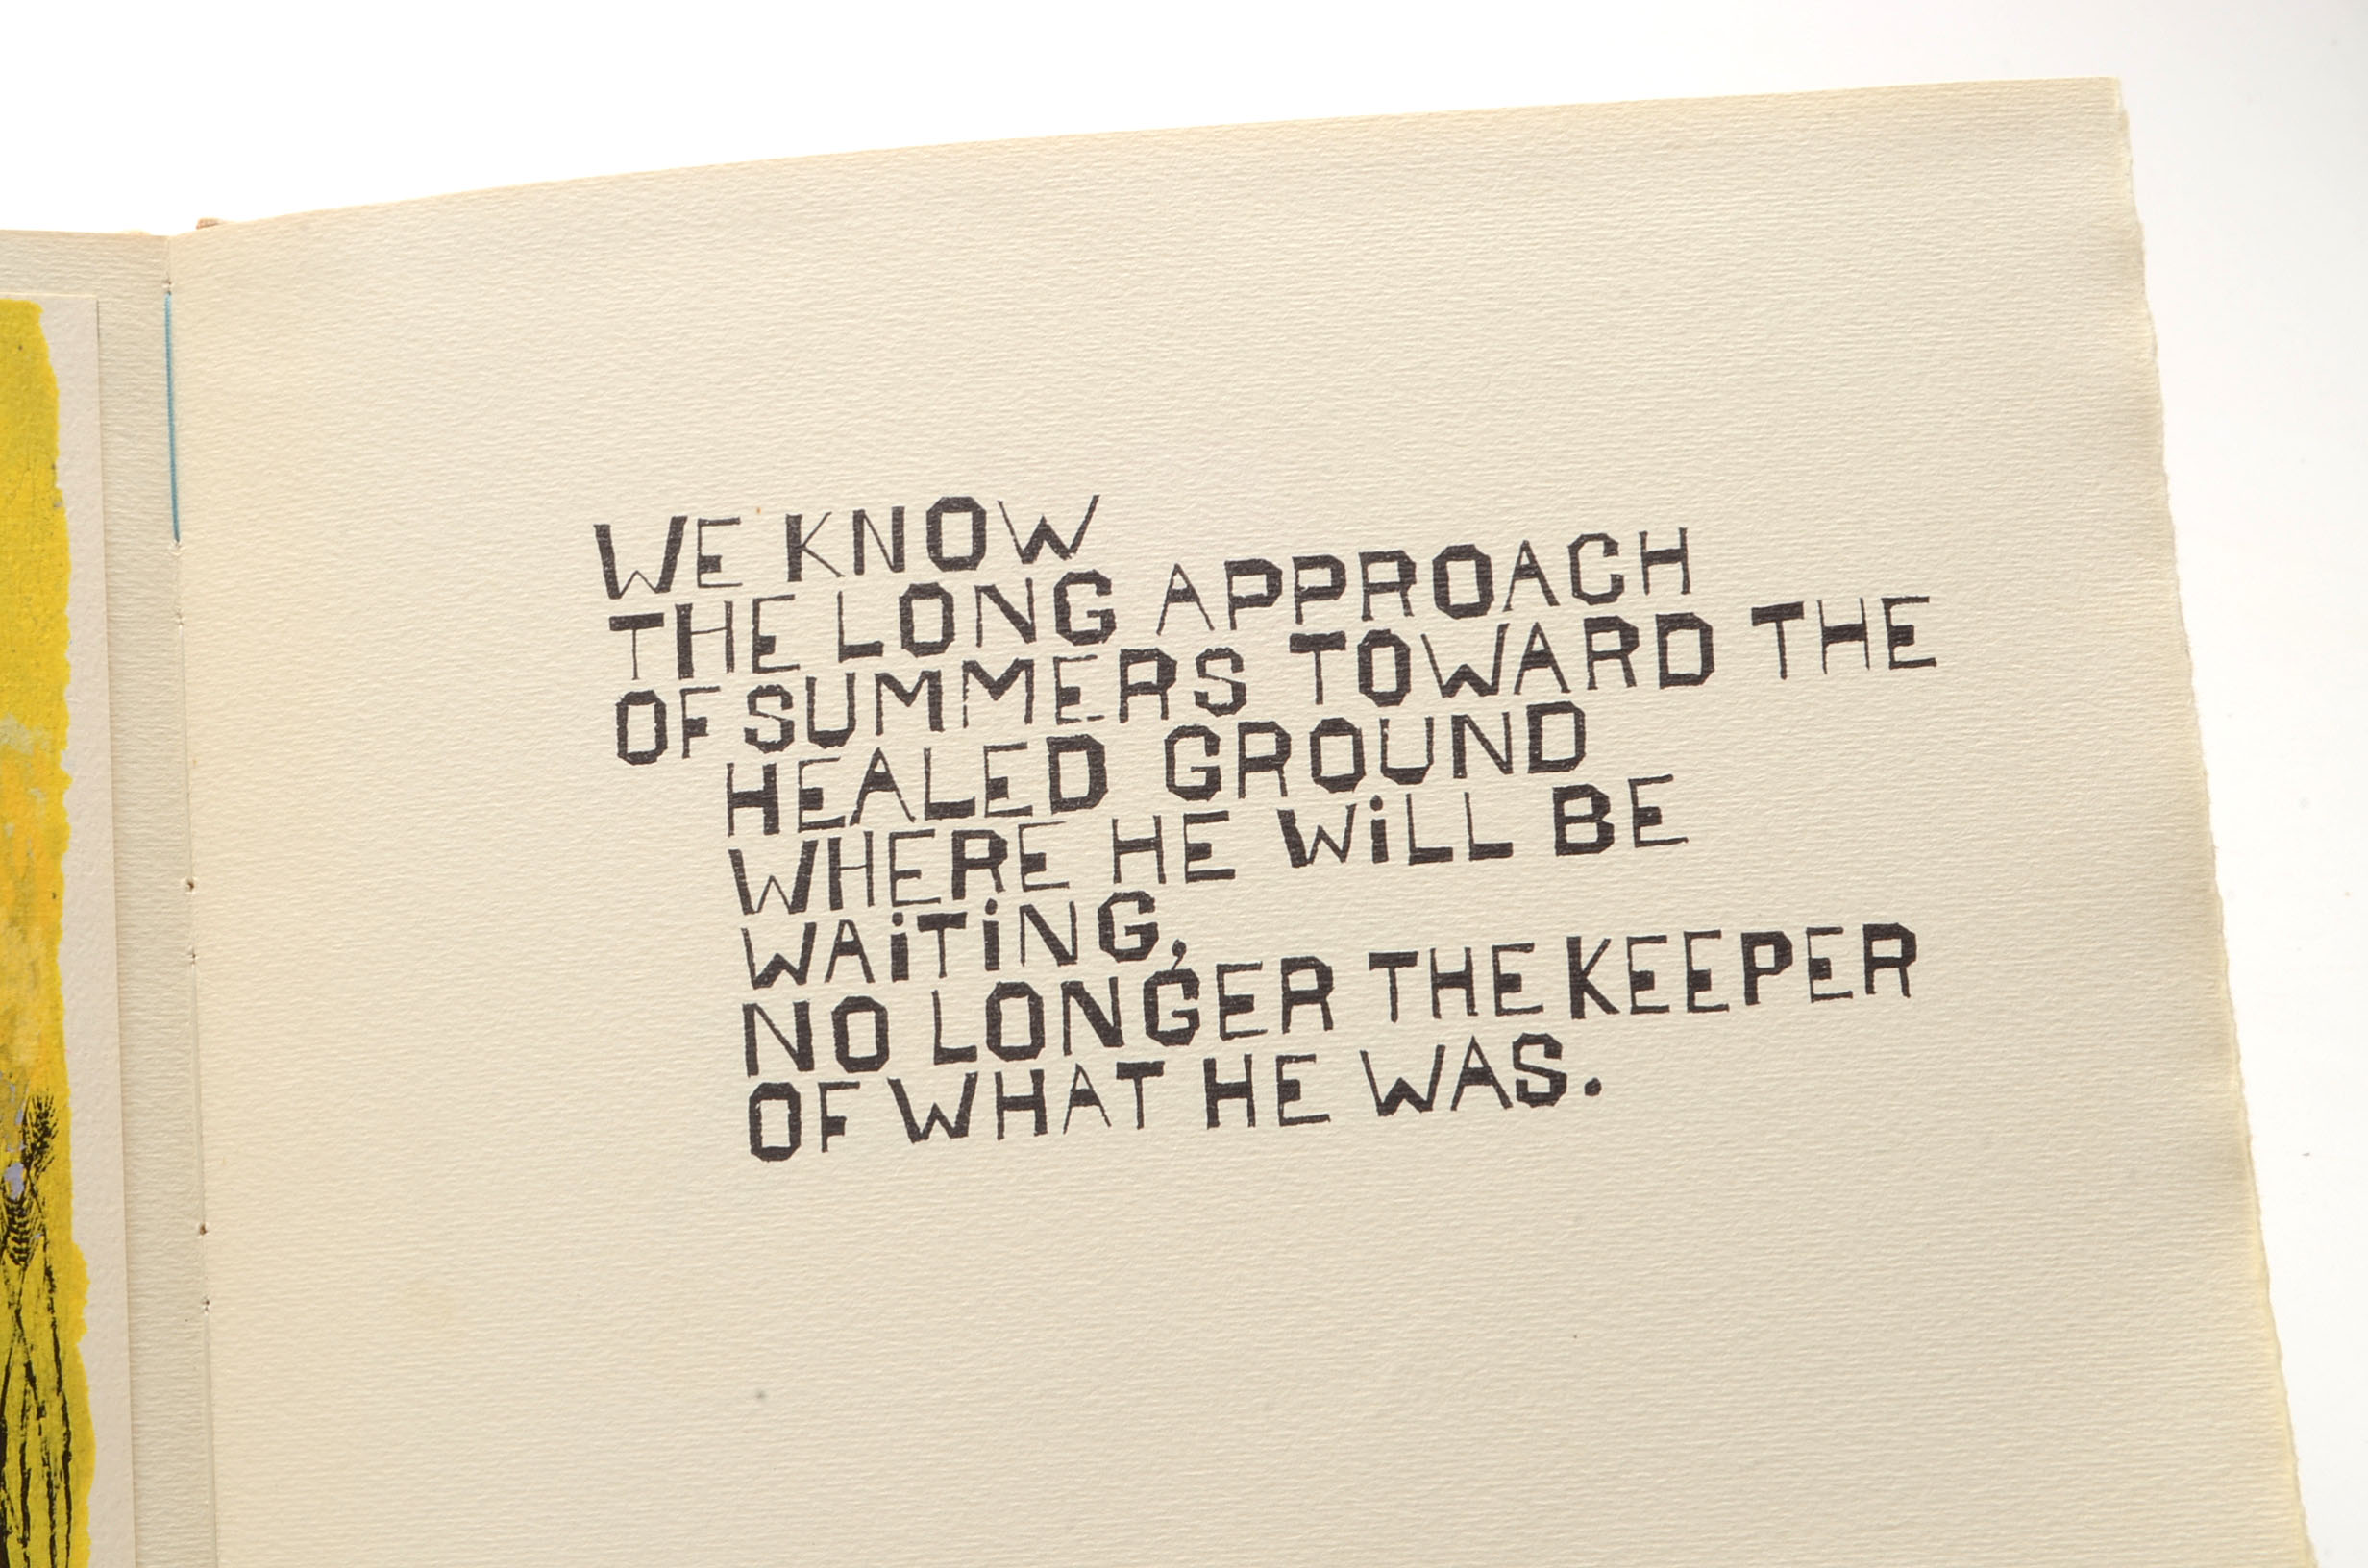 WE KNOW
THE LONG APPROACH
OF SUMMERS TOWARD THE
HEALED GROUND
WHERE HE WiLL BE
WAiTiNG,
NO LONGER THE KEEPER
OF WHAT HE WAS.